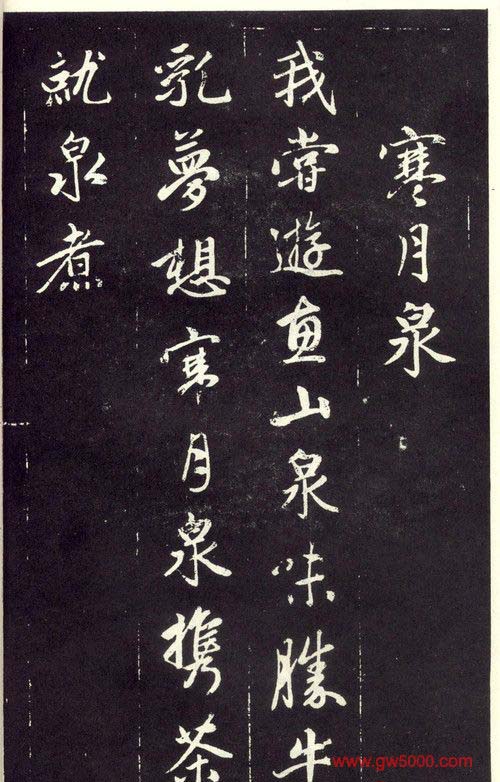 寒月泉
我嘗遊惠山泉味勝牛
乳夢想寒月泉攜茶
就泉煮
www.gw5000.com